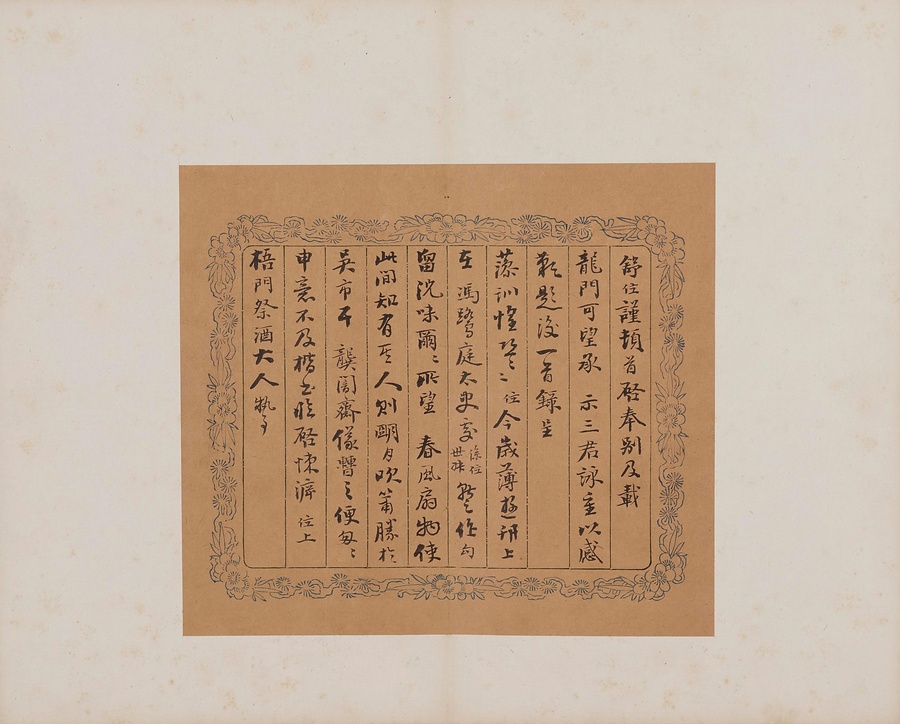 舒位謹頓首啓奉別及載
龍門可望承 示三君詠重以感
歎題後一首錄呈
藻訓惶恐〻位今歲薄遊邗上
在馮鷺庭太史家係位世時作句
留況味爾〻所望 春風扇物使
此間知有其人則明月吹簫勝於
吳市耳 龔闇齋僚壻之便匆〻
申意不及楷書臨啓悚 位上
梧門祭酒大人執事